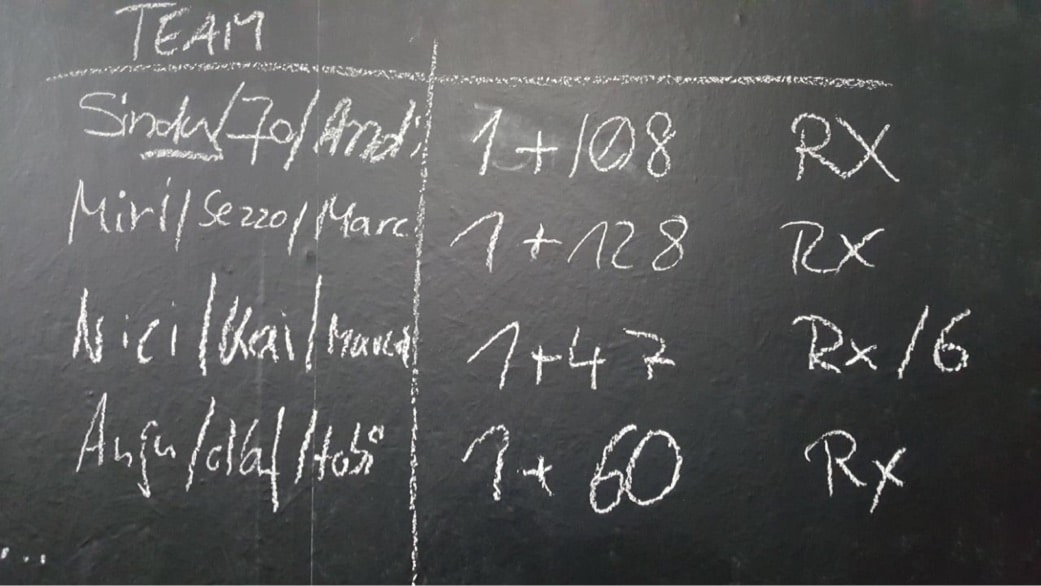 TEAM
Sindy/Jo/Andi 1+108 RX
Miri/Sezzo/Marc 1+128 RX
Nici/Kai/Marco 1+47 Rx/6
/Olaf/Tobi 1+60 Rx
...